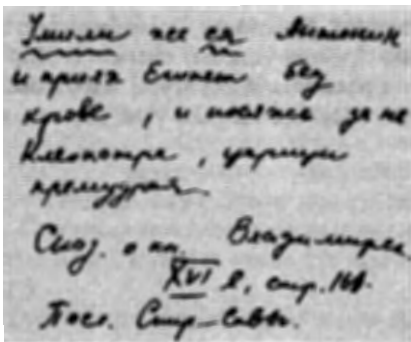 Умили же ся Антонин
и прият Египет без
крове, и посяже за не
Клеопатра, царици
премудрая
Сказ. о кн. Владимирск.
XVI в, стр. 161.
Посл. Спир-Савы.